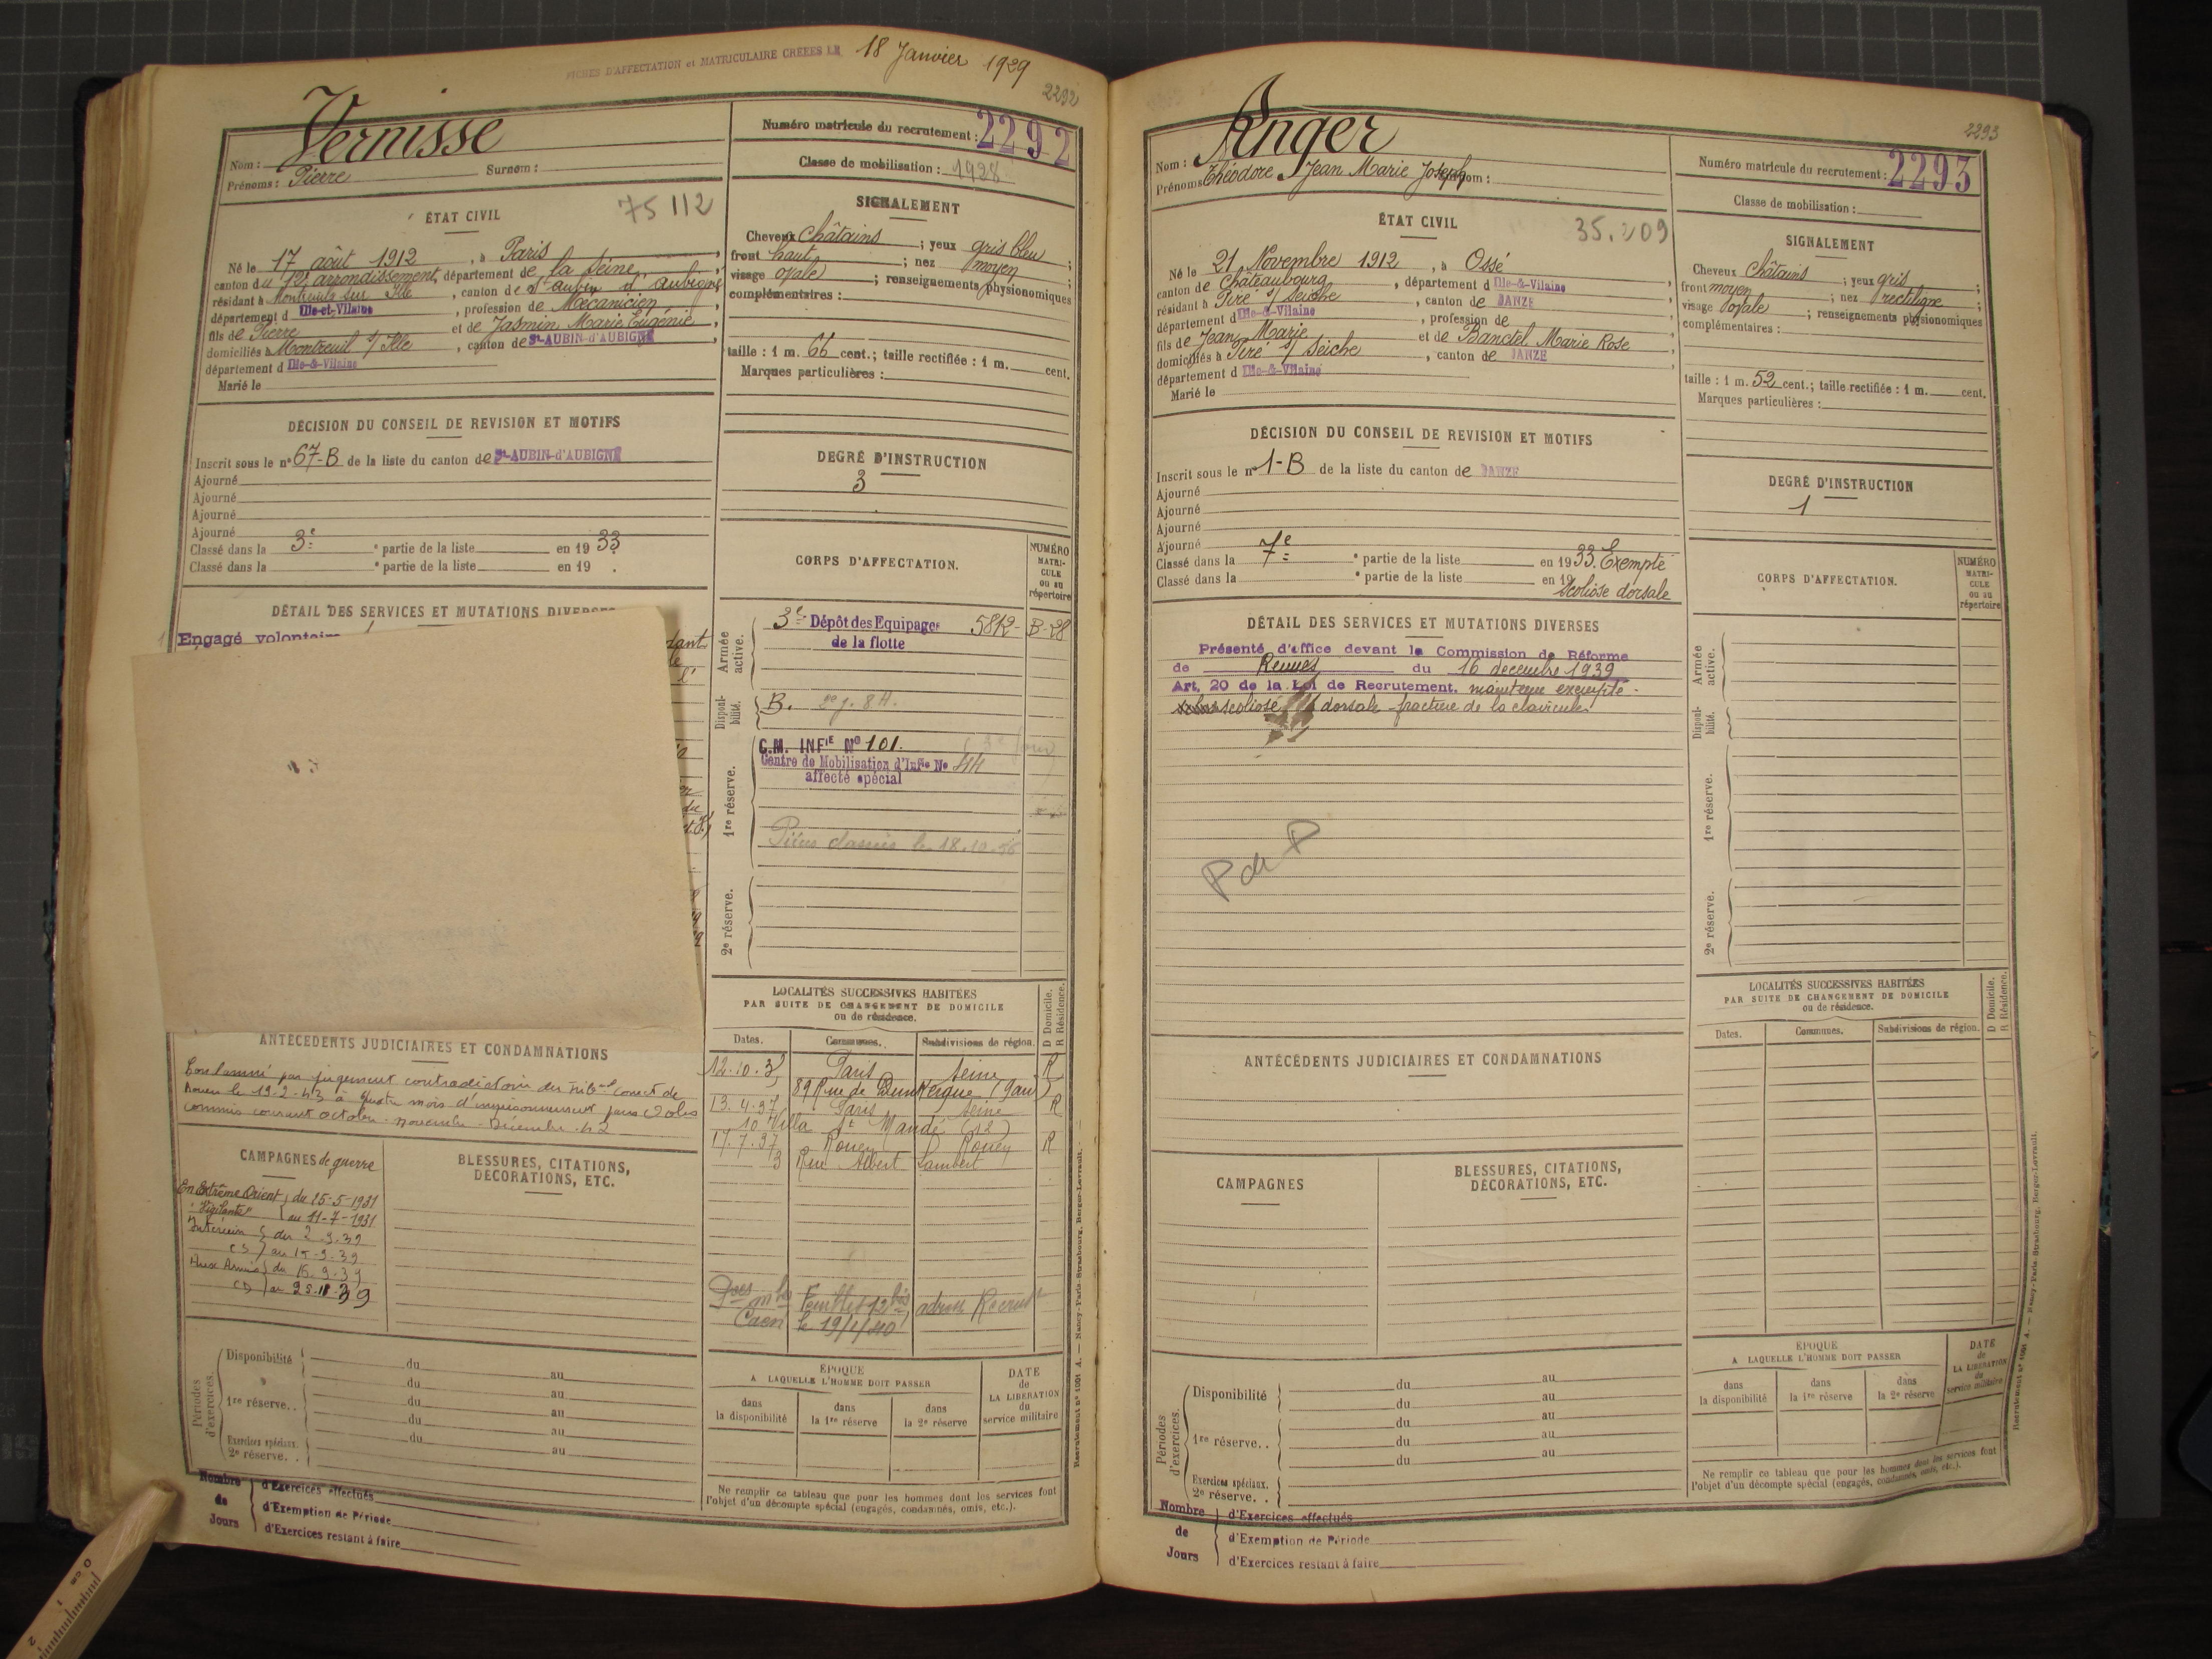 FICHES D'AFFECTATION et MATRICULAIRE CRÉÉES LE 18 Janvier 1929
2292
Nom : Vernisse
Prénoms : Pierre Surnom :
Numéro matricule du recrutement : 2292
Classe de mobilisation : 1928
ÉTAT CIVIL
75 112
Né le 17 août 1912, à Paris,
canton du 12e arrondissement, département de la Seine,
résidant à Montreuil sur Ille, canton de St Aubin d'Aubigné,
département d Ille-et-Vilaine, profession de Mécanicien,
fils de Pierre et de Jasmin Marie Eugénie,
domiciliés à Montreuil s/ Ille, canton de St-AUBIN-d'AUBIGNE,
département d Ille-&-Vilaine
Marié le
SIGNALEMENT
Cheveux Châtains ; yeux gris bleu ;
front haut ; nez moyen ;
visage ovale ; renseignements physionomiques
complémentaires :
taille : 1 m. 66 cent.; taille rectifiée : 1 m. cent.
Marques particulières :
DÉCISION DU CONSEIL DE REVISION ET MOTIFS
Inscrit sous le n° 67-B de la liste du canton de St-AUBIN-d'AUBIGNE
Ajourné
Ajourné
Ajourné
Ajourné
Classé dans la 3e partie de la liste en 19 33
Classé dans la e partie de la liste en 19 .
DEGRÉ D'INSTRUCTION
3
DÉTAIL DES SERVICES ET MUTATIONS DIVERSES
Engagé volontaire
CORPS D'AFFECTATION.
NUMÉRO MATRICULE ou au répertoire
Armée active.
3e Dépôt des Equipages 5842- B-28
de la flotte
Disponibilité.
B.
1re réserve.
C.M. INFIE N° 101.
Centre de Mobilisation d'Infie No 44
affecté spécial
le 18.10.56
2e réserve.
LOCALITÉS SUCCESSIVES HABITÉES
PAR SUITE DE CHANGEMENT DE DOMICILE
ou de résidence.
Dates. Communes. Subdivisions de région. D Domicile. R Résidence.
12.10.3 Paris Seine R
89 Rue de Dunkerque (9arr)
13.4.37 Paris Seine R
10 Villa St Mandé (12)
17.7.37 Rouen Rouen R
3 Rue Albert Lambert
Feuillet 12 bis adress Recrutt
Caen le 19/1/40
ANTÉCÉDENTS JUDICIAIRES ET CONDAMNATIONS
Condamné par jugement contradictoire du Tribnal correct de
Rouen le 19-2-43 à quatre mois d'emprisonnement pour Vols
commis courant octobre - novembre - Décembre 42
CAMPAGNES de guerre
En Extrême Orient du 15-5-1931
"Vigilante" au 11-7-1931
Intérieur du 2.9.39
CS au 15.9.39
Aux Armées du 16.9.39
CD au 25.11.39
BLESSURES, CITATIONS,
DÉCORATIONS, ETC.
Périodes d'exercices.
Disponibilité du au
du au
1re réserve. . du au
du au
Exercices spéciaux.
2e réserve. . du au
ÉPOQUE
A LAQUELLE L'HOMME DOIT PASSER
dans la disponibilité
dans la 1re réserve
dans la 2e réserve
DATE de LA LIBÉRATION du service militaire
Ne remplir ce tableau que pour les hommes dont les services font
l'objet d'un décompte spécial (engagés, condamnés, omis, etc.).
Nombre de Jours
d'Exercices effectués
d'Exemption de Période
d'Exercices restant à faire
Recrutement n° 1091 A. — Nancy-Paris-Strasbourg, Berger-Levrault.
2293
Nom : Anger
Prénoms Théodore Jean Marie Joseph Surnom :
Numéro matricule du recrutement : 2293
Classe de mobilisation :
ÉTAT CIVIL
35.209
Né le 21 Novembre 1912, à Ossé,
canton de Châteaubourg, département d Ille-&-Vilaine,
résidant à Piré s/ Seiche, canton de JANZE,
département d Ille-&-Vilaine, profession de
fils de Jean Marie et de Banctel Marie Rose,
domiciliés à Piré s/ Seiche, canton de JANZE,
département d Ille-&-Vilaine
Marié le
SIGNALEMENT
Cheveux Châtains ; yeux gris ;
front moyen ; nez rectiligne ;
visage ovale ; renseignements physionomiques
complémentaires :
taille : 1 m. 52 cent.; taille rectifiée : 1 m. cent.
Marques particulières :
DÉCISION DU CONSEIL DE REVISION ET MOTIFS
Inscrit sous le n° 1-B de la liste du canton de JANZE
Ajourné
Ajourné
Ajourné
Ajourné
Classé dans la 7e partie de la liste en 19 33. Exempté
Classé dans la e partie de la liste en 19
Scoliose dorsale
DEGRÉ D'INSTRUCTION
1
DÉTAIL DES SERVICES ET MUTATIONS DIVERSES
Présenté d'office devant la Commission de Réforme
de Rennes du 16 décembre 1939
Art. 20 de la Loi de Recrutement. maintenu exempté.
scoliose dorsale - fracture de la clavicule
P de P
CORPS D'AFFECTATION.
NUMÉRO MATRICULE ou au répertoire
Armée active.
Disponibilité.
1re réserve.
2e réserve.
LOCALITÉS SUCCESSIVES HABITÉES
PAR SUITE DE CHANGEMENT DE DOMICILE
ou de résidence.
Dates. Communes. Subdivisions de région. D Domicile. R Résidence.
ANTÉCÉDENTS JUDICIAIRES ET CONDAMNATIONS
CAMPAGNES
BLESSURES, CITATIONS,
DÉCORATIONS, ETC.
Périodes d'exercices.
Disponibilité du au
du au
1re réserve. . du au
du au
Exercices spéciaux.
2e réserve. . du au
ÉPOQUE
A LAQUELLE L'HOMME DOIT PASSER
dans la disponibilité
dans la 1re réserve
dans la 2e réserve
DATE de LA LIBÉRATION du service militaire
Ne remplir ce tableau que pour les hommes dont les services font
l'objet d'un décompte spécial (engagés, condamnés, omis, etc.).
Nombre de Jours
d'Exercices effectués
d'Exemption de Période
d'Exercices restant à faire
Recrutement n° 1091 A. — Nancy-Paris-Strasbourg, Berger-Levrault.